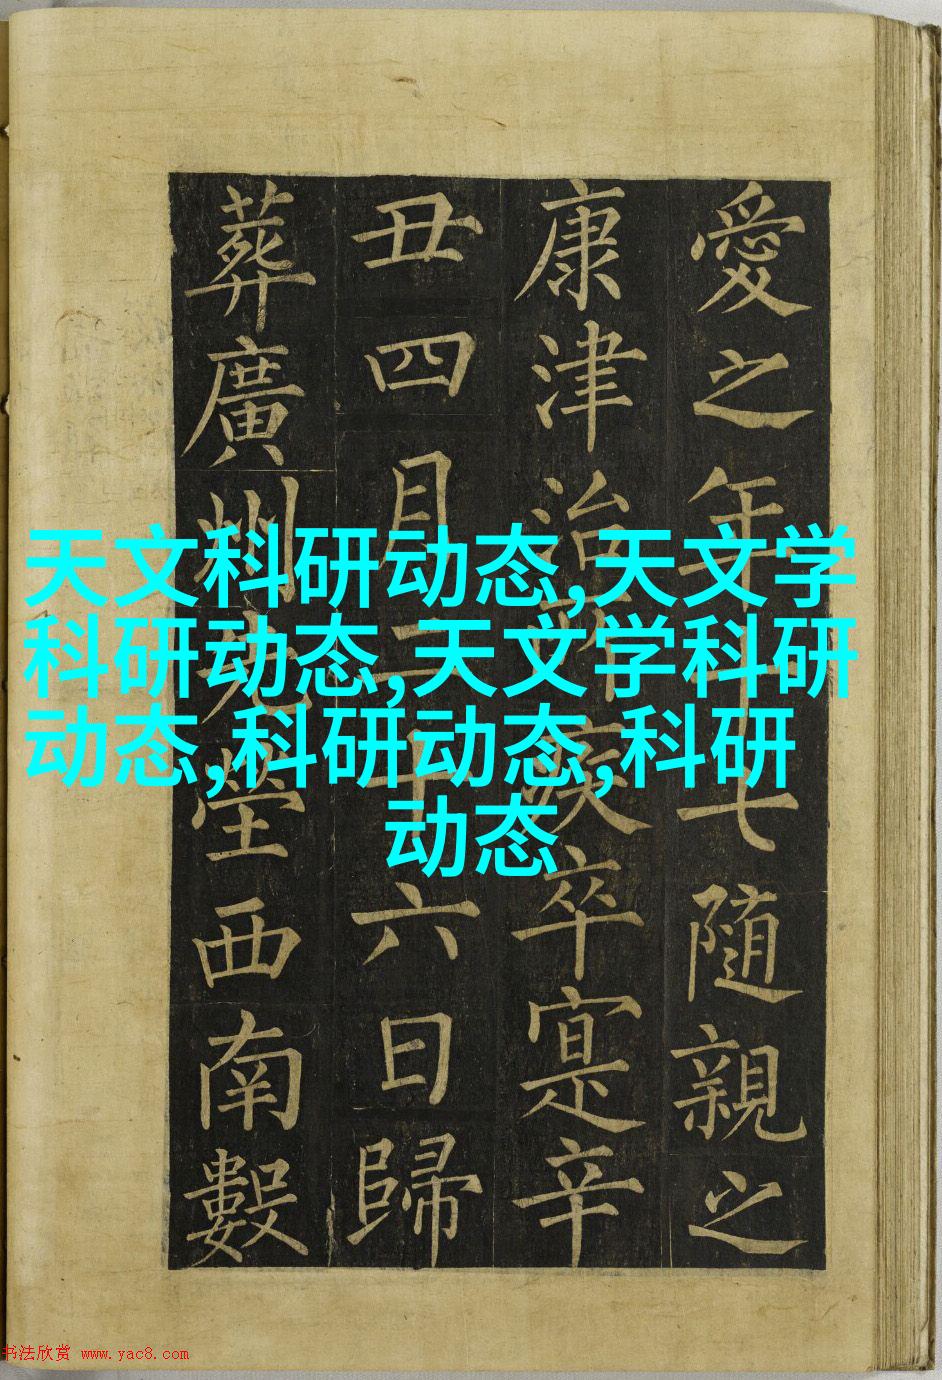 愛之年十七隨親之
康津治所疾卒寔辛
丑四月二十六日歸
葬廣州先塋西南數
天文科研动态,天文学
科研动态,天文学科研
动态,科研动态,科研
动态
书法欣赏 www.yac8.com